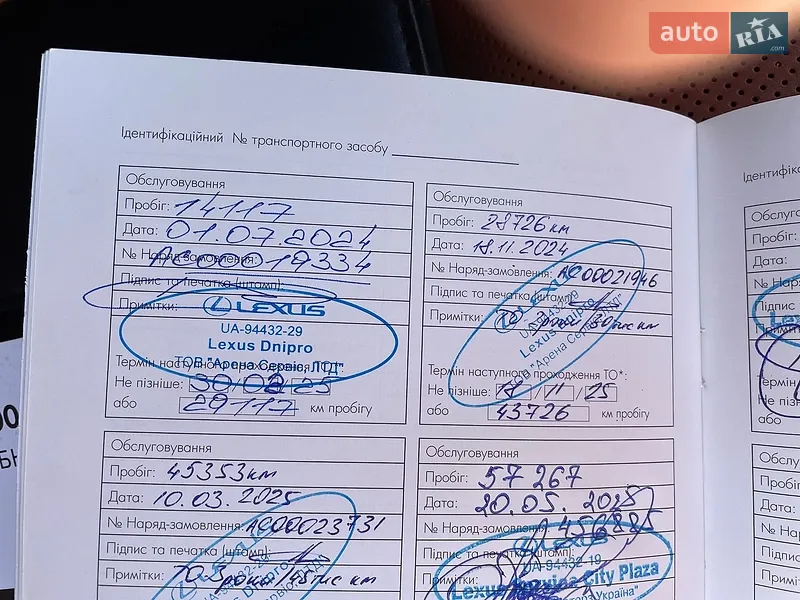 auto RIA .com
Ідентифікаційний № транспортного засобу
Обслуговування
Пробіг: 14117
Дата: 01.07.2024
№ Наряд-замовлення: АС00019334
Підпис та печатка (штамп):
Примітки:
LEXUS
UA-94432-29
Lexus Dnipro
ТОВ "Арена Сервіс, ЛТД"
Термін наступного проходження ТО*:
Не пізніше: 30/ /25
або 29117 км пробігу
Обслуговування
Пробіг: 28726 км
Дата: 18.11.2024
№ Наряд-замовлення: АС00021946
Підпис та печатка (штамп):
Примітки:
UA-94432-29
Lexus Dnipro
ТОВ "Арена Сервіс, ЛТД"
Термін наступного проходження ТО*:
Не пізніше: /11/25
або 43726 км пробігу
Обслуговування
Пробіг: 45353 км
Дата: 10.03.2025
№ Наряд-замовлення: АС00023731
Підпис та печатка (штамп):
Примітки:
Обслуговування
Пробіг: 57 267
Дата: 20.05.
№ Наряд-замовлення:
Підпис та печатка (штамп):
Примітки:
LEXUS
UA-94432-19
Lexus City Plaza
Пробіг:
Дата:
або
Дата: